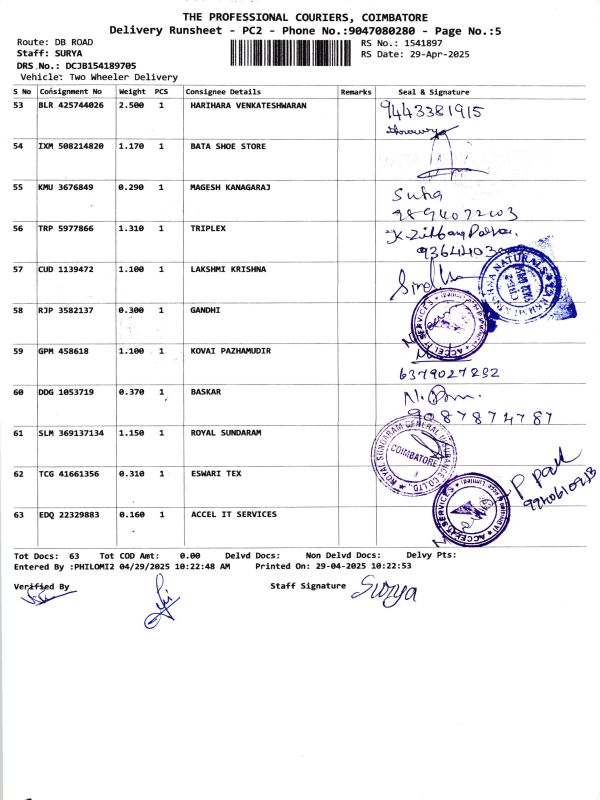 THE PROFESSIONAL COURIERS, COIMBATORE
Delivery Runsheet - PC2 - Phone No.:9047080280 - Page No.:5
Route: DB ROAD RS No.: 1541897
Staff: SURYA RS Date: 29-Apr-2025
DRS No.: DCJB154189705
Vehicle: Two Wheeler Delivery
S No Consignment No Weight PCS Consignee Details Remarks Seal & Signature
53 BLR 425744026 2.500 1 HARIHARA VENKATESHWARAN 9443381915
54 IXM 508214820 1.170 1 BATA SHOE STORE
55 KMU 3676849 0.290 1 MAGESH KANAGARAJ Suha
9894072203
56 TRP 5977866 1.310 1 TRIPLEX
57 CUD 1139472 1.100 1 LAKSHMI KRISHNA
58 RJP 3582137 0.300 1 GANDHI
59 GPM 458618 1.100 1 KOVAI PAZHAMUDIR
6379027232
60 DDG 1053719 0.370 1 BASKAR
9087874787
61 SLM 369137134 1.150 1 ROYAL SUNDARAM
ROYAL SUNDARAM GENERAL INSURANCE CO LTD
COIMBATORE
62 TCG 41661356 0.310 1 ESWARI TEX
63 EDQ 22329883 0.160 1 ACCEL IT SERVICES
Tot Docs: 63 Tot COD Amt: 0.00 Delvd Docs: Non Delvd Docs: Delvy Pts:
Entered By :PHILOMI2 04/29/2025 10:22:48 AM Printed On: 29-04-2025 10:22:53
Verified By Staff Signature Surya